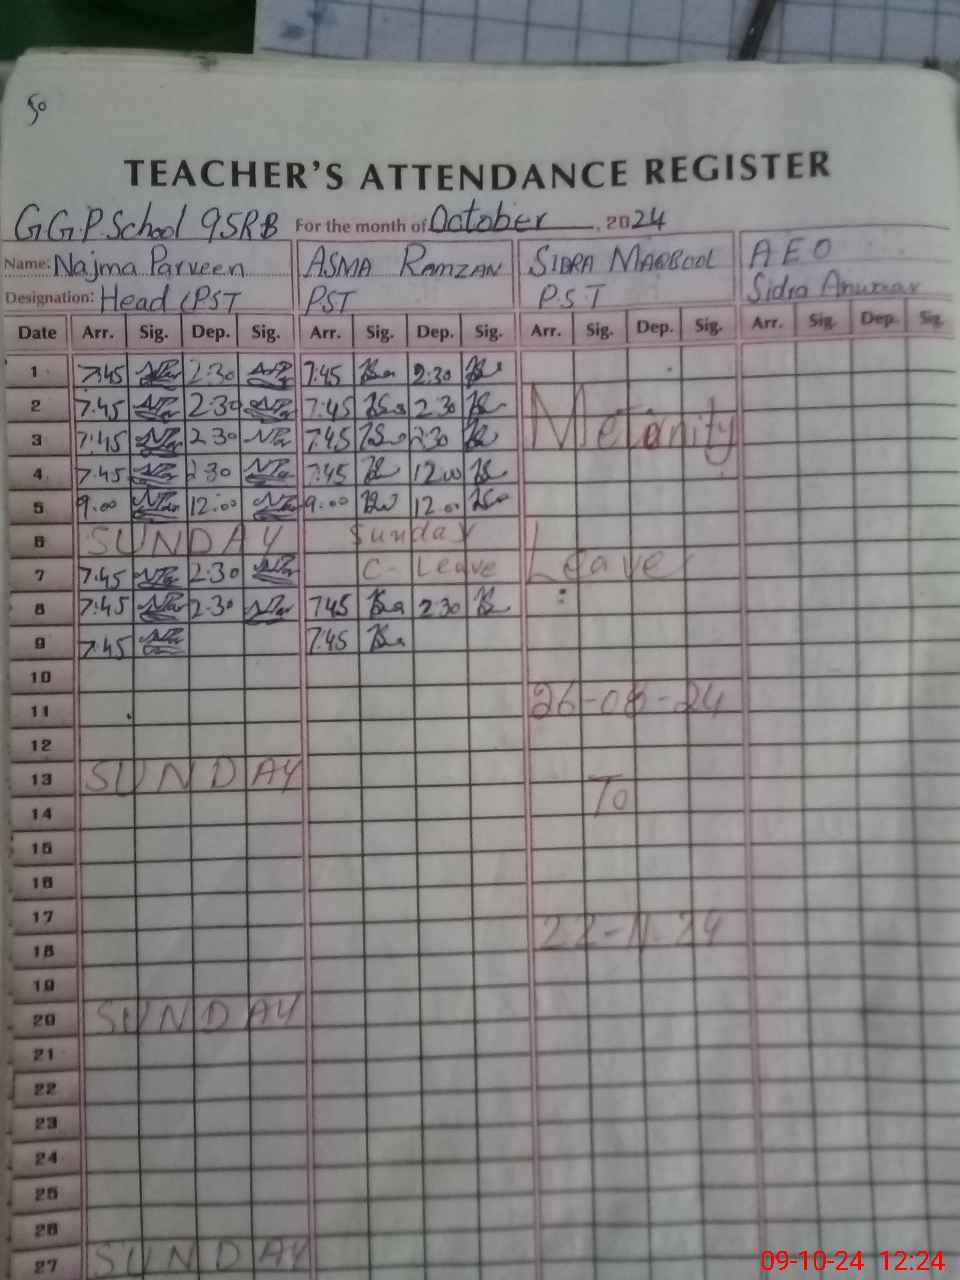 50
TEACHER'S ATTENDANCE REGISTER
G.G.P.School 95RB For the month of October, 2024
Name: Najma Parveen ASMA RAMZAN SIDRA MAQBOOL A E O
Designation: Head (PST PST P.S.T Sidra
Date Arr. Sig. Dep. Sig. Arr. Sig. Dep. Sig. Arr. Sig. Dep. Sig. Arr. Sig. Dep. Sig.
1 7:45 2:30 7:45 2:30
2 7:45 2:30 7:45 2:30 Metarnity
3 7:45 2:30 7:45 2:30
4 7:45 2:30 7:45 12.00
5 9.00 12:00 9.00 12.00
6 SUNDAY Sunday
7 7:45 2:30 C- Leave Leave
8 7:45 2:30 7:45 2:30
9 7:45 7:45
10
11 26-08-24
12
13 SUNDAY
14 To
15
16
17 22-11-24
18
19
20 SUNDAY
21
22
23
24
25
26
27 SUNDAY
09-10-24 12:24